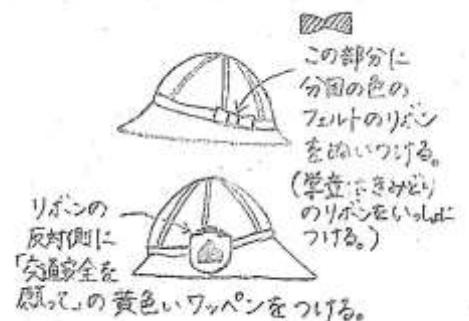 この部分に
分団の色の
フェルトのリボン
をぬいつける。
(学童はきみどり
のリボンをいっしょに
つける。)
リボンの
反対側に
「交通安全を
願って」の黄色いワッペンをつける。